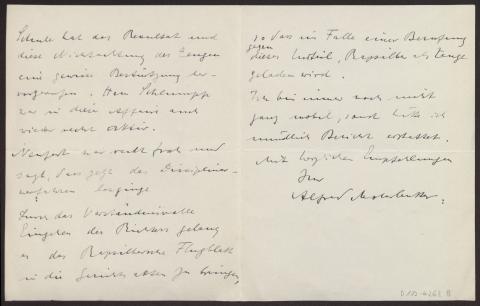 Schule hat das Resultat und
diese Nichtachtung des Zeugen
eine gewisse Bestürzung her-
vorgerufen. Herr
war in dieser Affaire auch
wieder recht aktiv.
war recht froh und
sagt, dass jetzt das Disciplinar-
verfahren losginge
Durch das Verständnisvolle
Eingehen des Richters gelang
es das Flugblatt
in die Gerichts Akten zu bringen,
so dass im Falle einer Berufung
gegen
dieses Urteil, als Zeuge
geladen wird.
Ich bin immer noch nicht
ganz mobil, sonst hätte ich
mündlich Bericht erstattet.
Mit herzlichen Empfehlungen
Ihr
Alfred